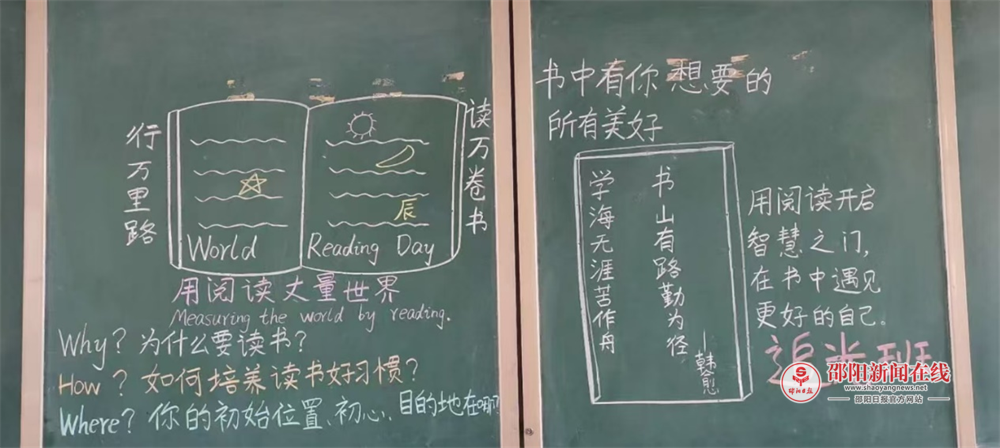 行万里路
读万卷书
辰
World
Reading Day
用阅读丈量世界
Measuring the world by reading.
Why? 为什么要读书?
How? 如何培养读书好习惯?
Where? 你的初始位置、初心、目的地在哪
书中有你想要的
所有美好
书山有路勤为径
学海无涯苦作舟
韩愈
用阅读开启
智慧之门,
在书中遇见
更好的自己。
追光班
邵阳日报
邵阳新闻在线
www.shaoyangnews.net
邵阳日报官方网站